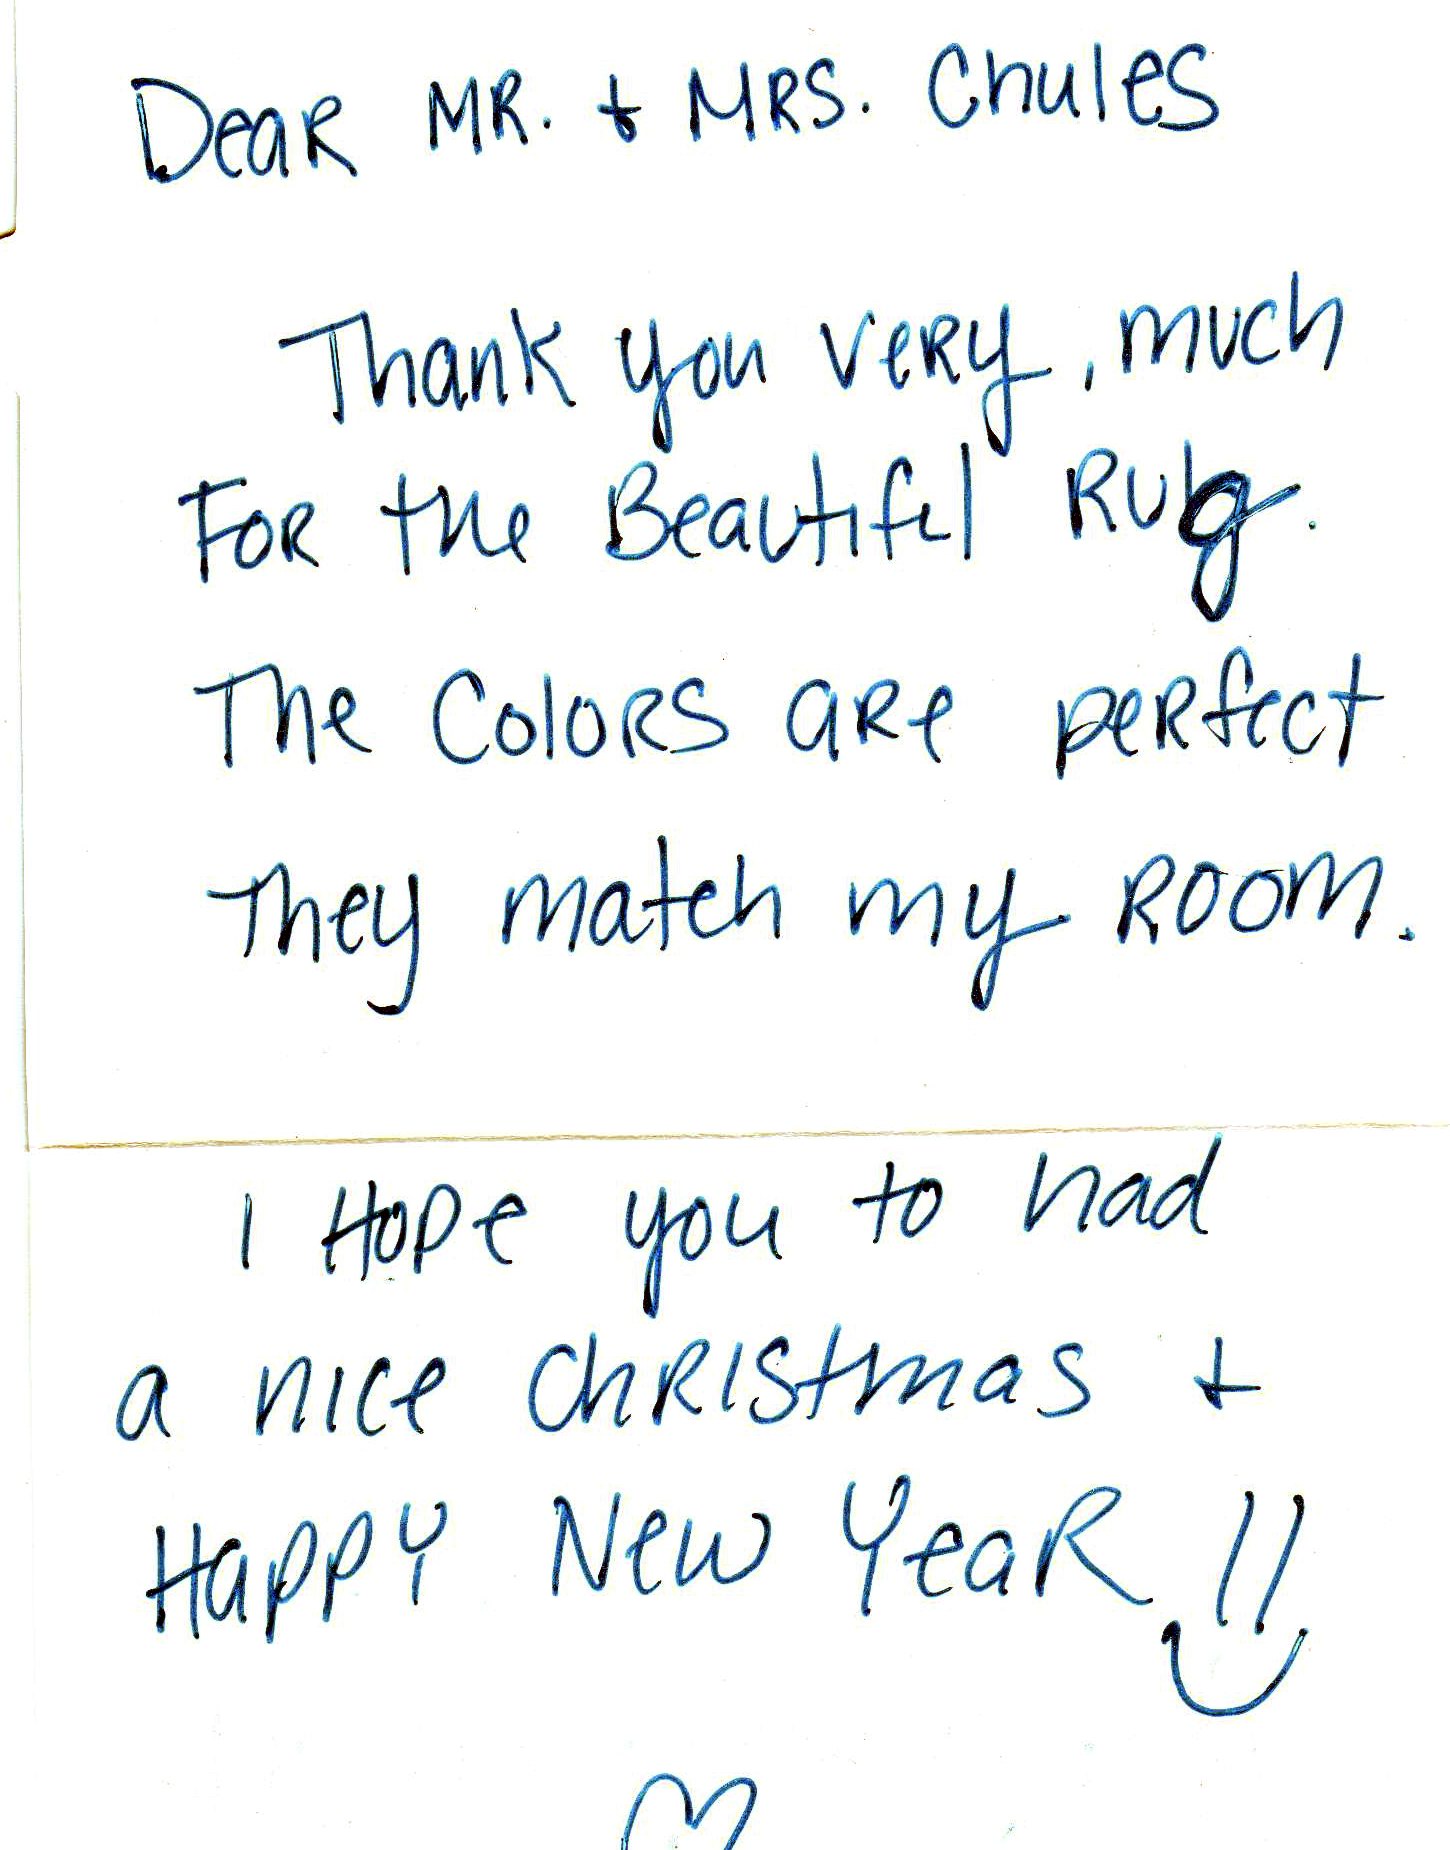 Dear MR. + MRS. Chules
Thank you very, much
FOR the Beautiful Rug.
The Colors are perfect
They match my ROOM.
I Hope you to had
a nice Christmas +
Happy New Year !!